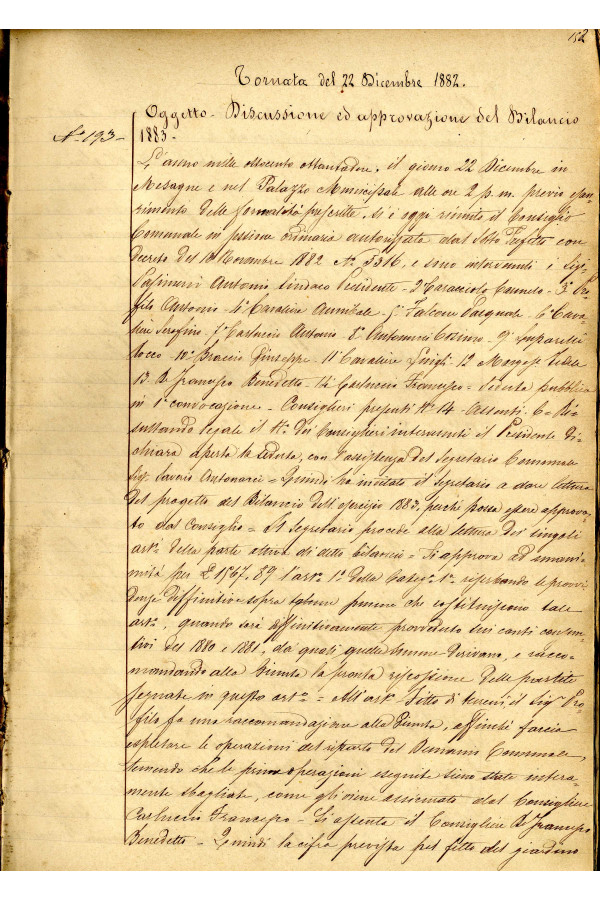 152
Tornata del 22 Dicembre 1882.
Oggetto - Discussione ed approvazione del Bilancio
N.° 193 -
1883 -
L'anno mille ottocento ottantadue, il giorno 22 Dicembre in
Mesagne e nel Palazzo Municipale alle ore 2 p.m. previo
rimento delle formalità prescritte, si è oggi riunito il Consiglio
Comunale in sessione ordinaria autorizzata dal Sotto Prefetto con
decreto del Novembre 1882 N.° 5316, e sono intervenuti i Sig.
Antonio Sindaco Presidente - 2° Caracciolo Carmelo - 3° Pro=
filo Antonio - 4° Cavaliere Annibale - 5° Falcone Pasquale - 6° Cava=
liere Serafino - 7° Carluccio Antonio - 8° Antonucci Cosimo - 9°
Rocco - 10° Braccio Giuseppe - 11 Cavaliere Luigi - 12
13 De Francesco Benedetto - 14 Carluccio Francesco - Seduta pubblica
in 1ª convocazione - Consiglieri presenti N.° 14 - Assenti 6 - Ri=
sultando legale il N.° dei Consiglieri intervenuti il Presidente di=
chiara aperta la seduta, con l'assistenza del Segretario Comunale
Sig. Saverio Antonucci - Quindi ha invitato il Segretario a dare lettura
del progetto del Bilancio dell'esercizio 1883, perché possa essere approva=
to dal Consiglio = Il Segretario procede alla lettura dei singoli
art.i della parte attiva di detto bilancio - Si approva ad unani=
mità per £ 1567.89 l'art.° 1° della Categ.a 1.a riserbando le provvi=
denze diffinitive sopra talune somme che costituiscono tale
art.°, quando sarà diffinitivamente provveduto sui conti consun=
tivi del 1880 e 1881, da quali quelle somme derivano, e racco=
mandando alla Giunta la pronta riscossione delle partite
segnate in questo art.° = All'art.° fitto di terreni, il Sig.r Pro=
filo fa una raccomandazione alla Giunta, affinché faccia
espletare le operazioni del riparto del Demanio Comunale,
temendo che le prime operazioni eseguite siano state intera=
mente sbagliate, come gli viene assicurato dal Consigliere
Carluccio Francesco - Si assenta il Consigliere De Francesco
Benedetto - Quindi la cifra prevista pel fitto del giardino